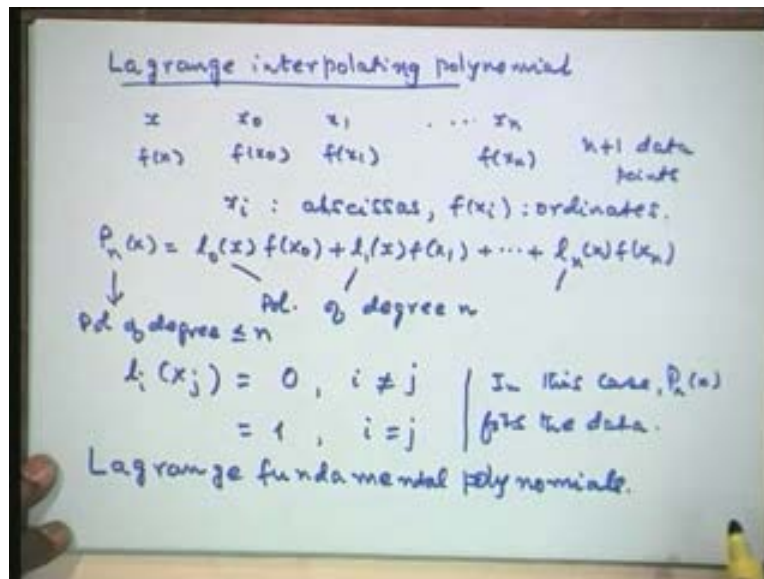 Lagrange interpolating polynomial
x x₀ x₁ .... xₙ
f(x) f(x₀) f(x₁) f(xₙ) n+1 data points
xᵢ : abscissas, f(xᵢ) : ordinates.
Pₙ(x) = l₀(x) f(x₀) + l₁(x) f(x₁) + ... + lₙ(x) f(xₙ)
Pol. of degree n
Pol of degree ≤ n
lᵢ(xⱼ) = 0 , i ≠ j | In this case, Pₙ(x)
= 1 , i = j | fits the data.
Lagrange fundamental polynomials.